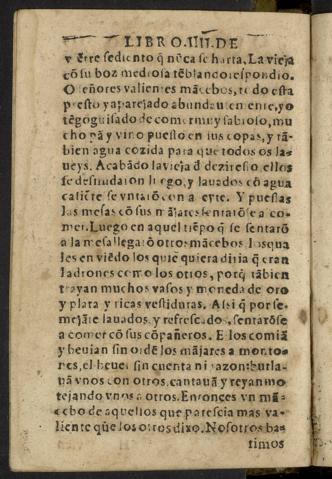 LIBRO. IIII. DE
viẽtre sediento q̃ nũca se harta. La vieja
cõ su boz medrosa tẽblando respondio.
O señores valientes mãcebos, todo esta
presto y aparejado abundantemente, yo
tẽgo guisado de comer muy sabroso, mu
cho pã y vino puesto en sus copas, y tã-
bien agua cozida para que todos os la-
ueys. Acabãdo la vieja d̃ dezir esto, ellos
se desnudaron luego, y lauados cõ agua
caliẽte se vntarõ con azeyte. Y puestas
las mesas cõ sus mãjares sentarõse a co-
mer. Luego en aquel tiẽpo q̃ se sentarõ
a la mesa llegarõ otros mãcebos, los qua
les en viẽdo los quiẽ quiera diria q̃ eran
ladrones como los otros, porq̃ tãbien
trayan muchos vasos y moneda de oro
y plata y ricas vestiduras. Assi q̃ por se-
mejãte lauados, y refrescados, sentarõse
a comer cõ sus cõpañeros. E los comiã
y beuian sin orden los mãjares a monto-
nes, el beuer sin cuenta ni razon: burla-
uã vnos con otros, cantauã y reyan mo
tejando vnos a otros. Entonces vn mã-
cebo de aquellos que parescia mas va-
liente q̃ue los otros dixo. Nosotros ba-
timos